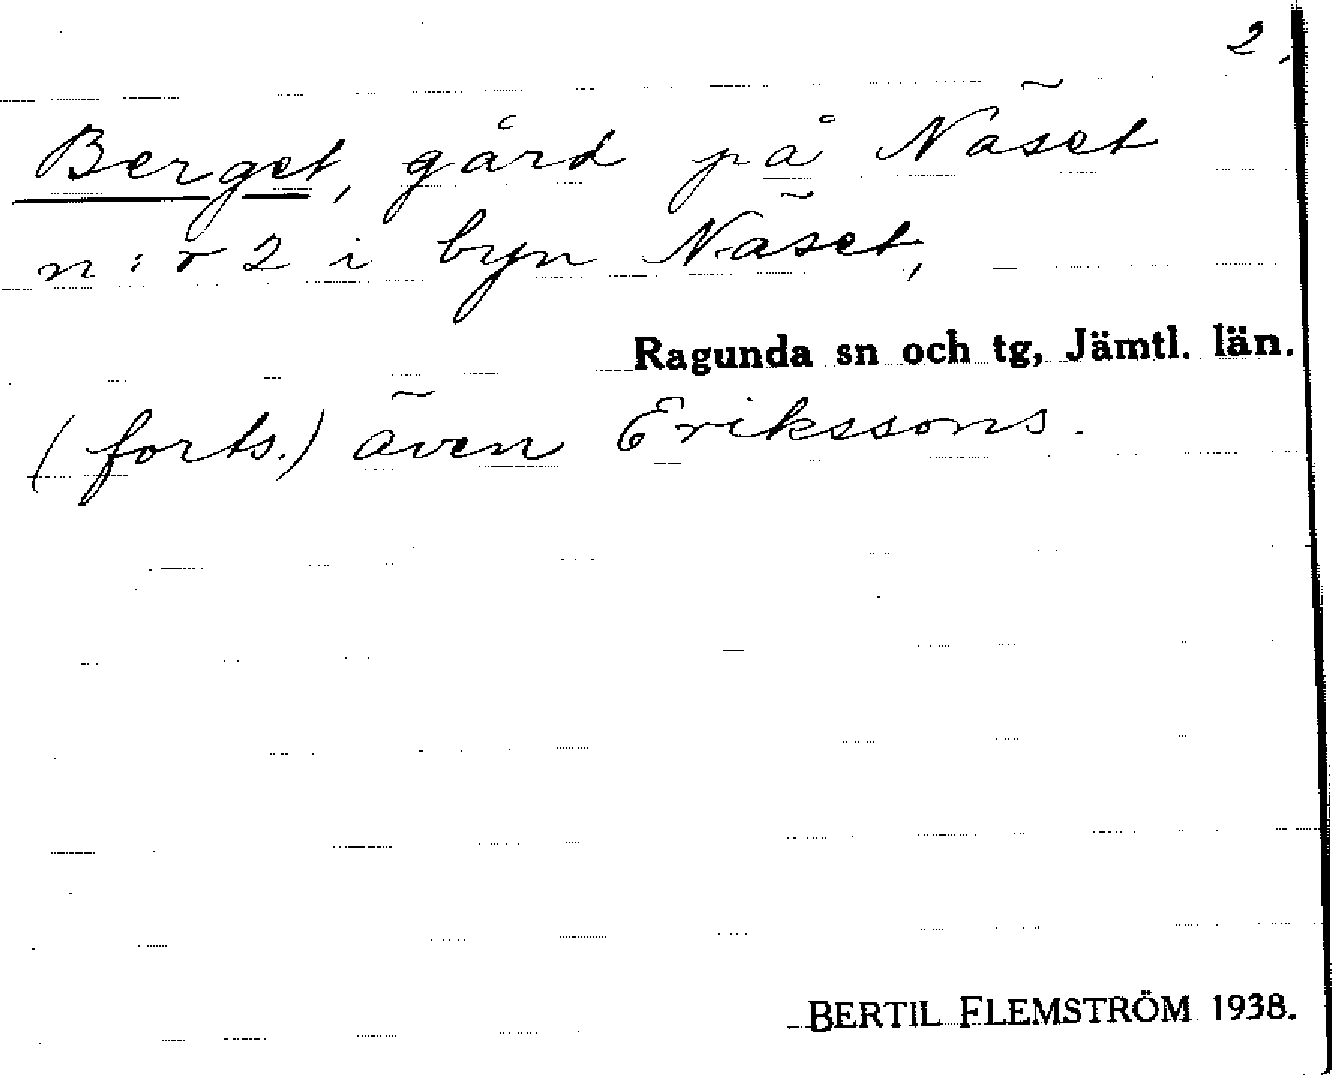 2.
Berget, gård på Näset
n:r 2 i byn Näset,
Ragunda sn och tg, Jämtl. län.
(forts.) även Erikssons.
BERTIL FLEMSTRÖM 1938.